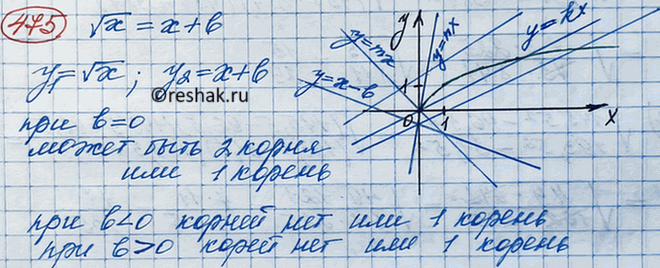 475 √x = x + в
y₁ = √x ; y₂ = x + в
©reshak.ru
при в = 0
может быть 2 корня
или 1 корень
при в < 0 корней нет или 1 корень
при в > 0 корей нет или 1 корень
y = mx
y
y = nx
y = kx
y = x - в
1
0
1
x